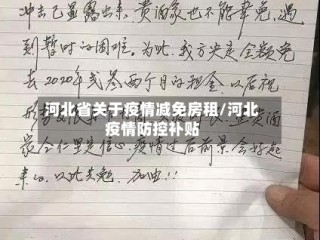 冲击已显露出来,黄酒家也不能幸免,遇
到暂时的困难。为此,我方决定全额免
去2020年贰叁两个月的租金,以后视
河北省关于疫情减免房租/河北
疫情防控补贴
最令仁里是信心,疫情过后前景会好起
来的。以此共勉,加油!!